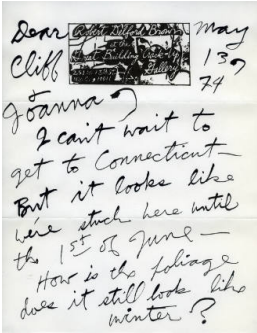 Dear
Cliff
&
Joanna,
Robert Delford Brown
at the
Great Building Crack-Up
Gallery
May
13,
74
I can't wait to
get to Connecticut—
But it looks like
we're stuck here until
the 1st of June—
How is the foliage
does it still look like
winter?